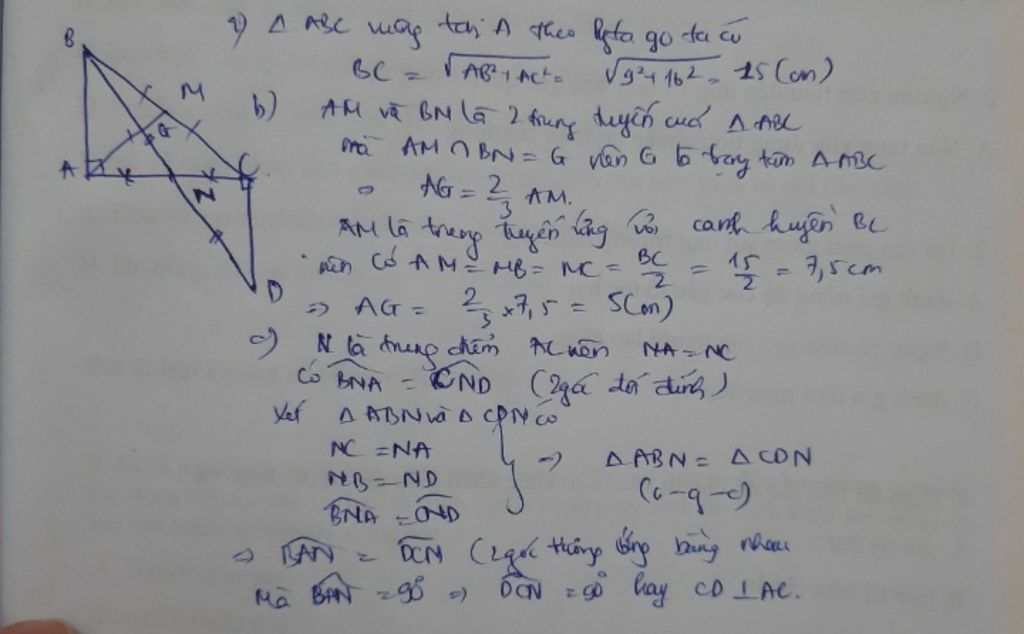 a) Δ ABC vuông tại A theo Pytago ta có
BC = √AB²+AC² = √9²+16² = 15 (cm)
b) AM và BN là 2 trung tuyến của Δ ABC
mà AM ∩ BN = G nên G là trọng tâm Δ ABC
⇒ AG = 2/3 AM.
AM là trung tuyến ứng với cạnh huyền BC
nên có AM = MB = MC = BC/2 = 15/2 = 7,5 cm
⇒ AG = 2/3 × 7,5 = 5 (cm)
c) N là trung điểm AC nên NA = NC
Có BNA = CND (2 góc đối đỉnh)
Xét Δ ABN và Δ CDN có
NC = NA
NB = ND ⇒ Δ ABN = Δ CDN
BNA = CND (c-g-c)
⇒ BAN = DCN (2 góc tương ứng bằng nhau
Mà BAN = 90° ⇒ DCN = 90° hay CD ⊥ AC.
B
M
G
A
C
N
D